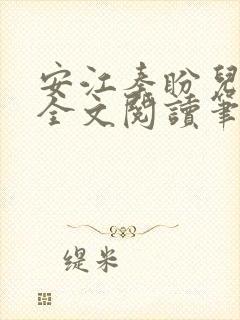 安江秦盼兒
全文閱讀筆
缇米